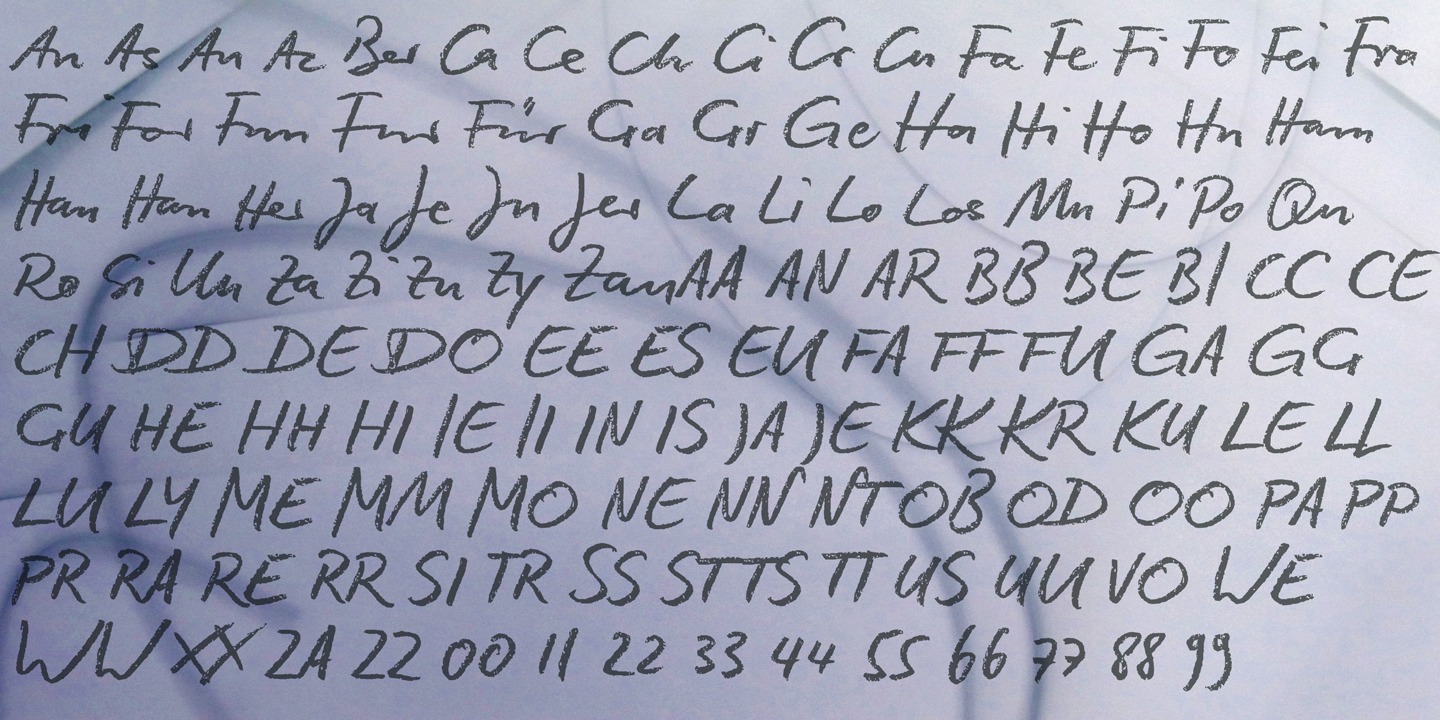 An As Au Az Ber Ca Ce Ch Ci Cr Cu Fa Fe Fi Fo Fei Fra
Fri For Fun Fur Für Ga Gr Ge Ha Hi Ho Hu Ham
Han Hau Her Ja Je Ju Jer La Li Lo Los Mu Pi Po Qu
Ro Si Un Za Zi Zu Zy Zau AA AN AR BB BE BI CC CE
CH DD DE DO EE ES EU FA FF FU GA GG
GU HE HH HI IE II IN IS JA JE KK KR KU LE LL
LU LY ME MM MO NE NN NT OB OD OO PA PP
PR RA RE RR SI TR SS ST TS TT US UU VO WE
WW XX ZA ZZ 00 11 22 33 44 55 66 77 88 99